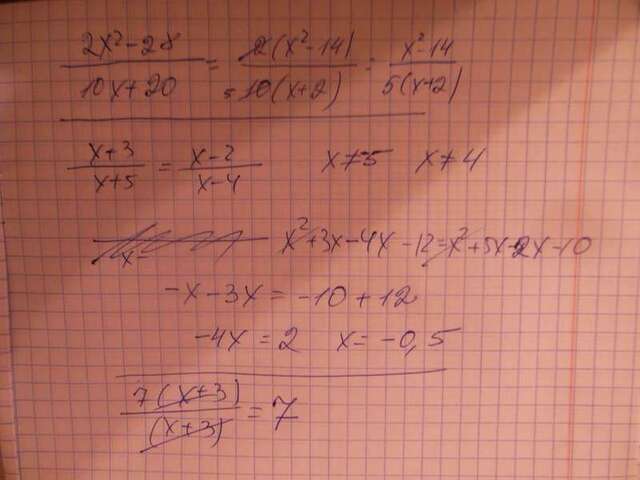 2x²-28 / 10x+20 = 2(x²-14) / 5 10(x+2) = x²-14 / 5(x+2)
x+3 / x+5 = x-2 / x-4 x≠-5 x≠4
x²+3x-4x-12=x²+5x-2x-10
-x-3x=-10+12
-4x=2 x=-0,5
7(x+3) / (x+3) = 7